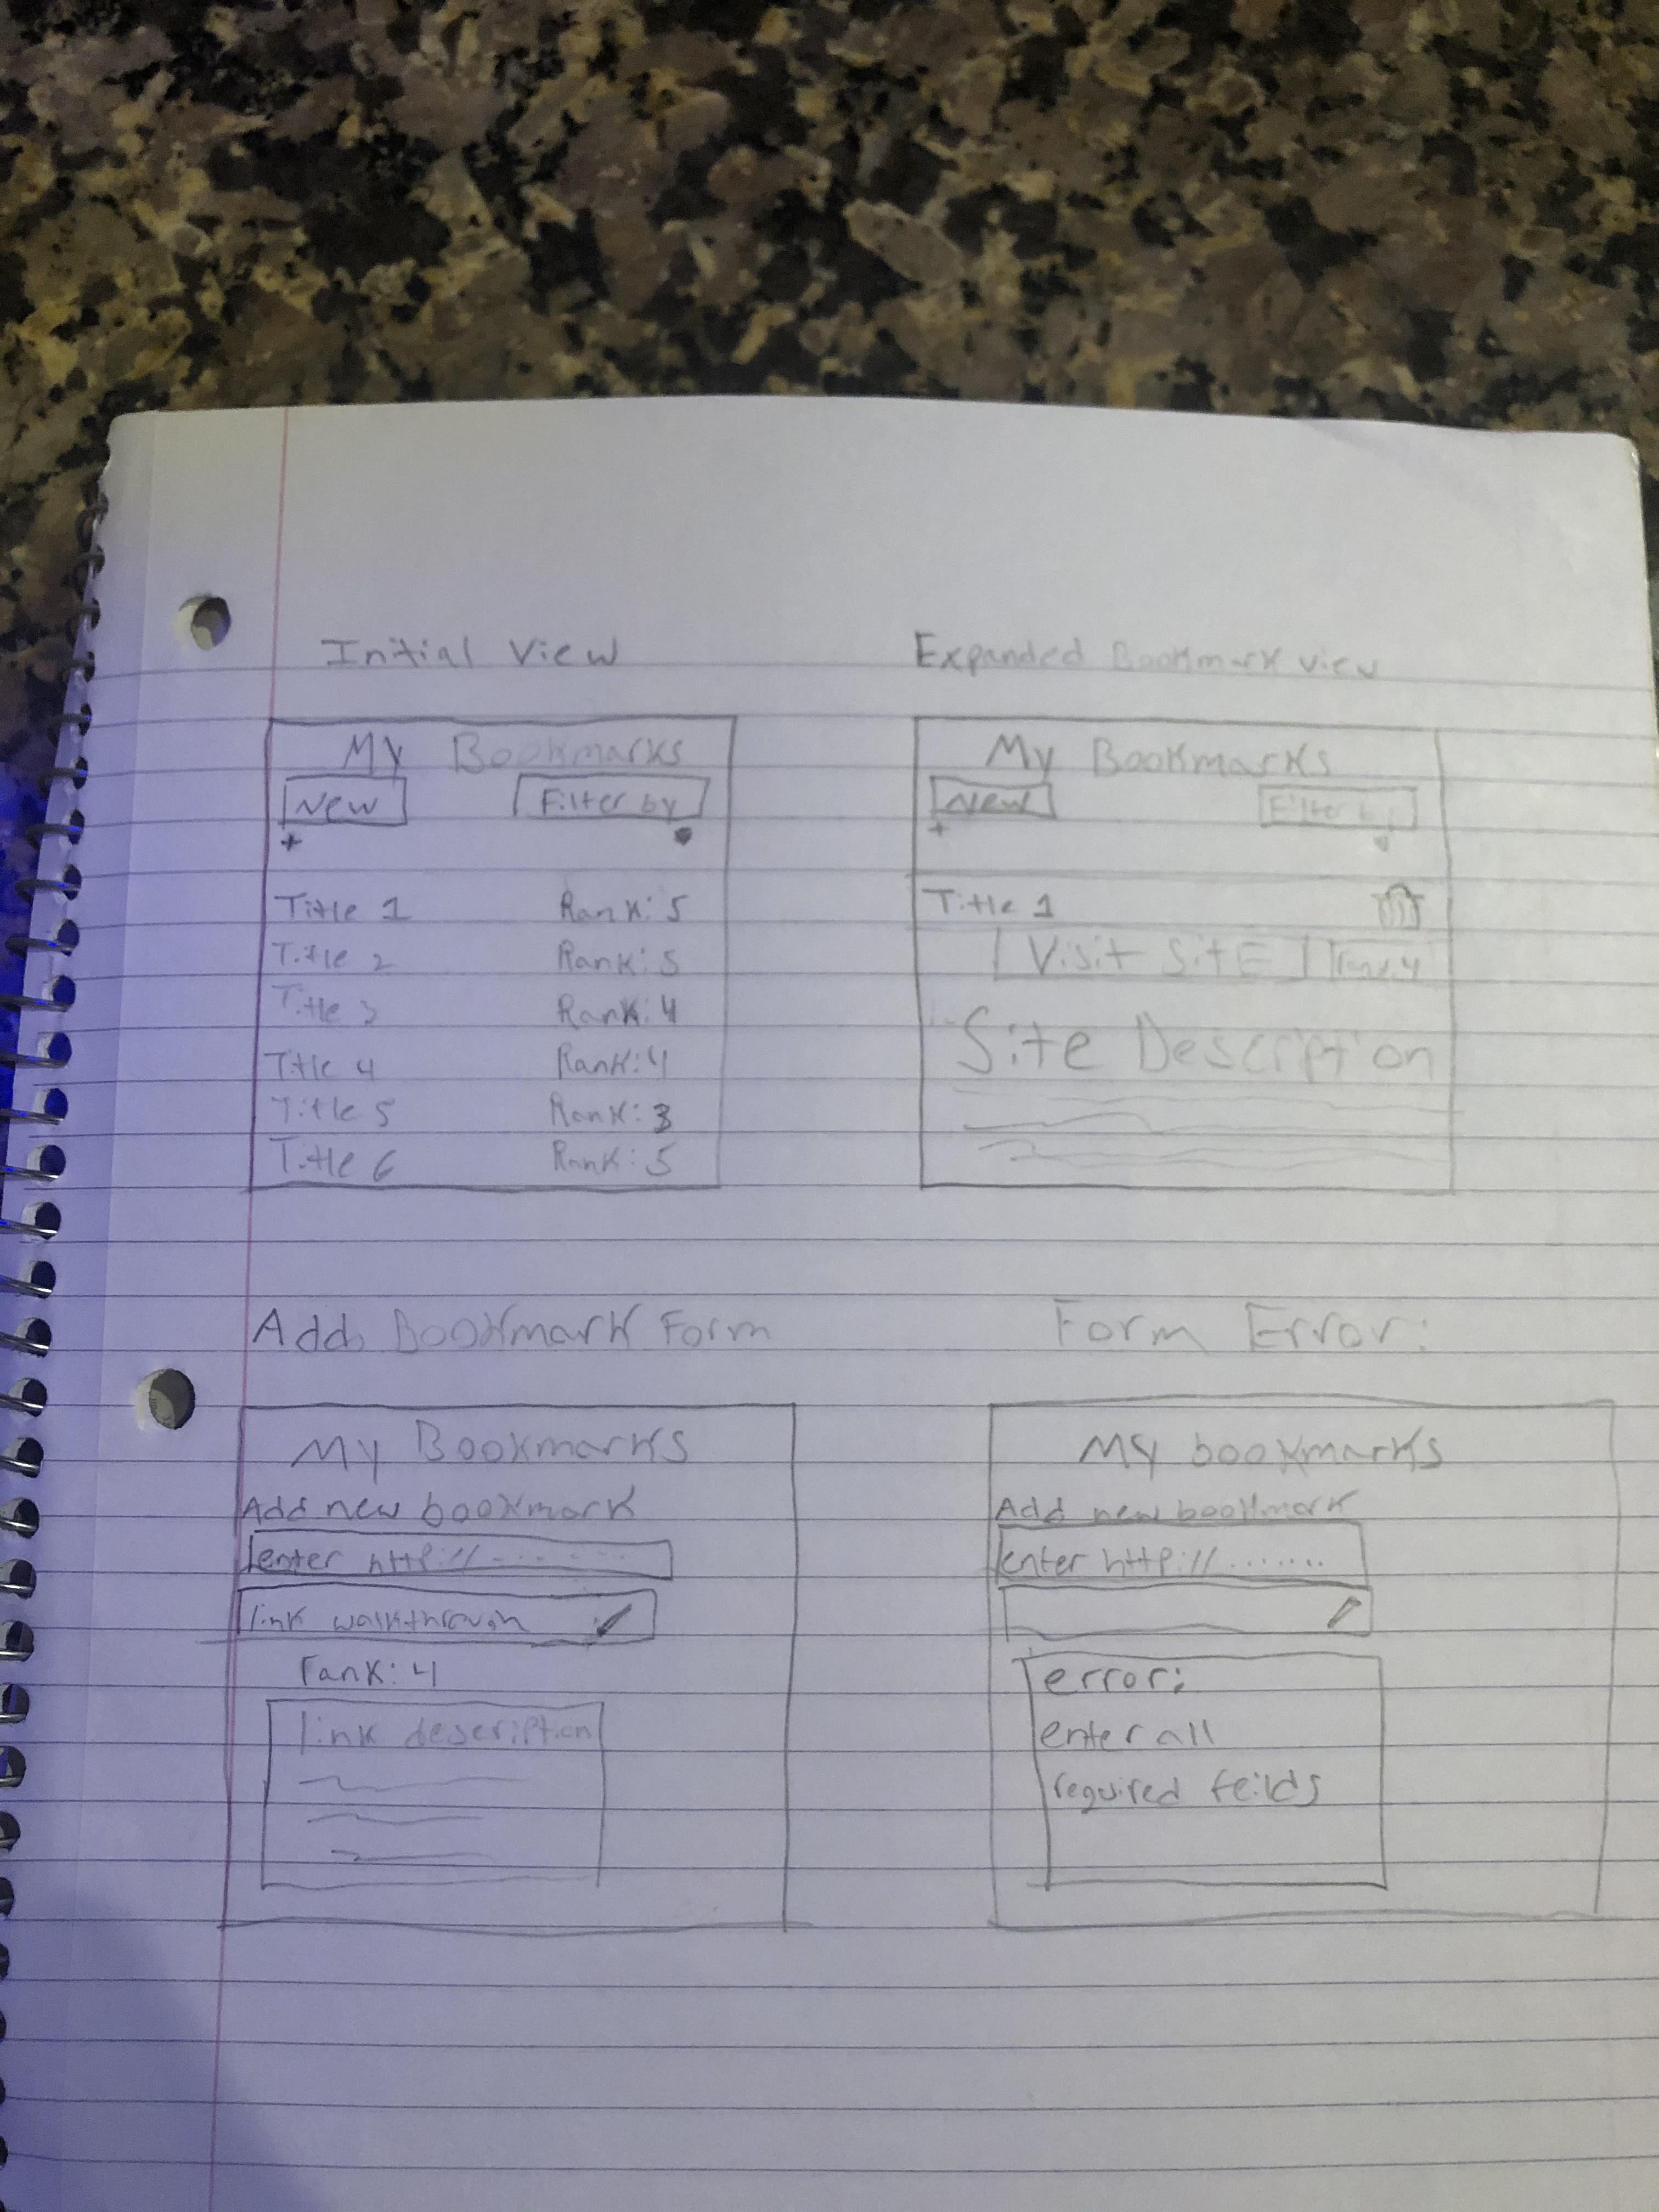 Initial View
My Bookmarks
New
Filter by
+
Title 1 Rank: 5
Title 2 Rank: 5
Title 3 Rank: 4
Title 4 Rank: 4
Title 5 Rank: 3
Title 6 Rank: 5
Expanded Bookmark view
My Bookmarks
New
Filter by
+
Title 1
Visit SitE
rank: 4
Site Description
Add Bookmark Form
My Bookmarks
Add new bookmark
enter http://.......
link walkthrough
rank: 4
link description
Form Error:
My bookmarks
Add new bookmark
enter http://.......
error:
enter all
required feilds